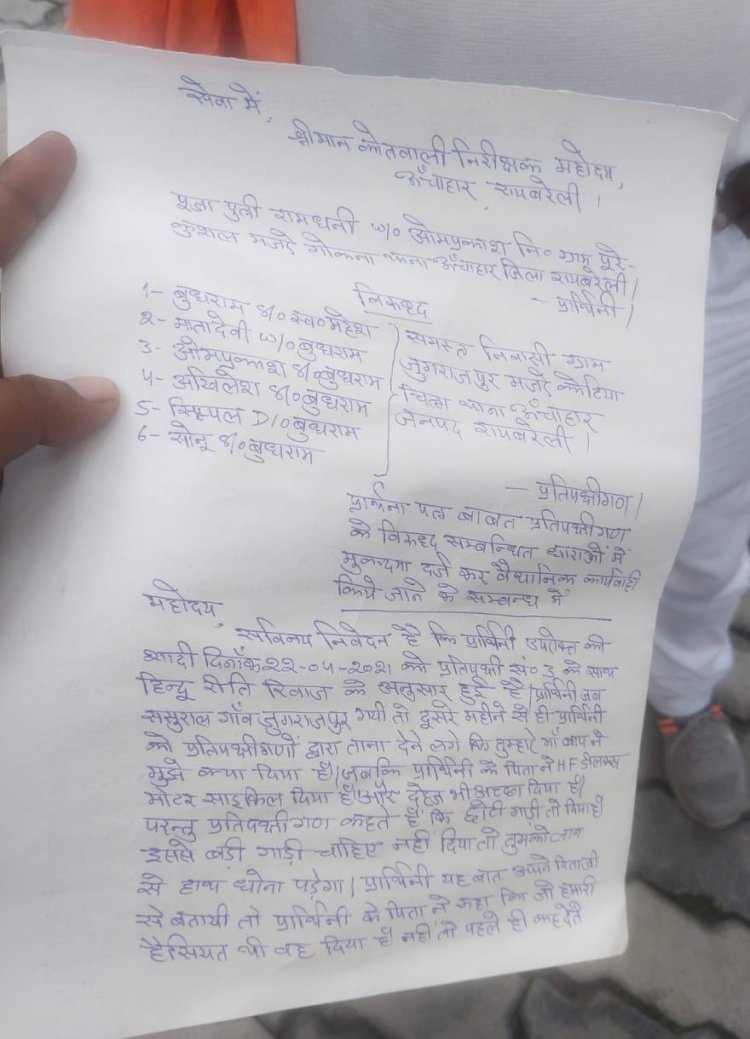 सेवा में,
श्रीमान कोतवाली निरीक्षक महोदय,
ऊँचाहार, रायबरेली।
पूजा पुत्री रामधनी w/o ओमप्रकाश नि० ग्राम पूरे-
कुशल मजरे गोकना थाना ऊँचाहार जिला रायबरेली।
- प्रार्थिनी।
विरुद्ध
1- बुधराम s/o स्व० महेश
2- मातादेवी w/o बुधराम
3- ओमप्रकाश s/o बुधराम
4- अखिलेश s/o बुधराम
5- D/o बुधराम
6- सोनू s/o बुधराम
समस्त निवासी ग्राम
जुगराजपुर मजरे कोटिया
चित्रा थाना ऊँचाहार
जनपद रायबरेली।
- प्रतिपक्षीगण।
प्रार्थना पत्र बाबत प्रतिपक्षीगण
के विरुद्ध सम्बन्धित धाराओं में
मुकदमा दर्ज कर वैधानिक कार्यवाही
किये जाने के सम्बन्ध में
महोदय,
सविनय निवेदन है कि प्रार्थिनी उपरोक्त की
शादी दिनाँक 22-04-2021 को प्रतिपक्षी सं० 3 के साथ
हिन्दू रीति रिवाज के अनुसार हुई है। प्रार्थिनी जब
ससुराल गाँव जुगराजपुर गयी तो दूसरे महीने से ही प्रार्थिनी
को प्रतिपक्षीगणों द्वारा ताना देने लगे कि तुम्हारे माँ बाप ने
मुझे क्या दिया है। जबकि प्रार्थिनी के पिता ने HF डीलक्स
मोटर साइकिल दिया है। और दहेज भी अच्छा दिया है।
परन्तु प्रतिपक्षीगण कहते हैं कि छोटी गाड़ी तो दिया है
इससे बड़ी गाड़ी चाहिए नहीं दिया तो तुमको जान
से हाथ धोना पड़ेगा। प्रार्थिनी यह बात अपने पिता जी
से बतायी तो प्रार्थिनी के पिता ने कहा कि जो हमारी
हैसियत थी वह दिया है नहीं तो पहले ही कह देते